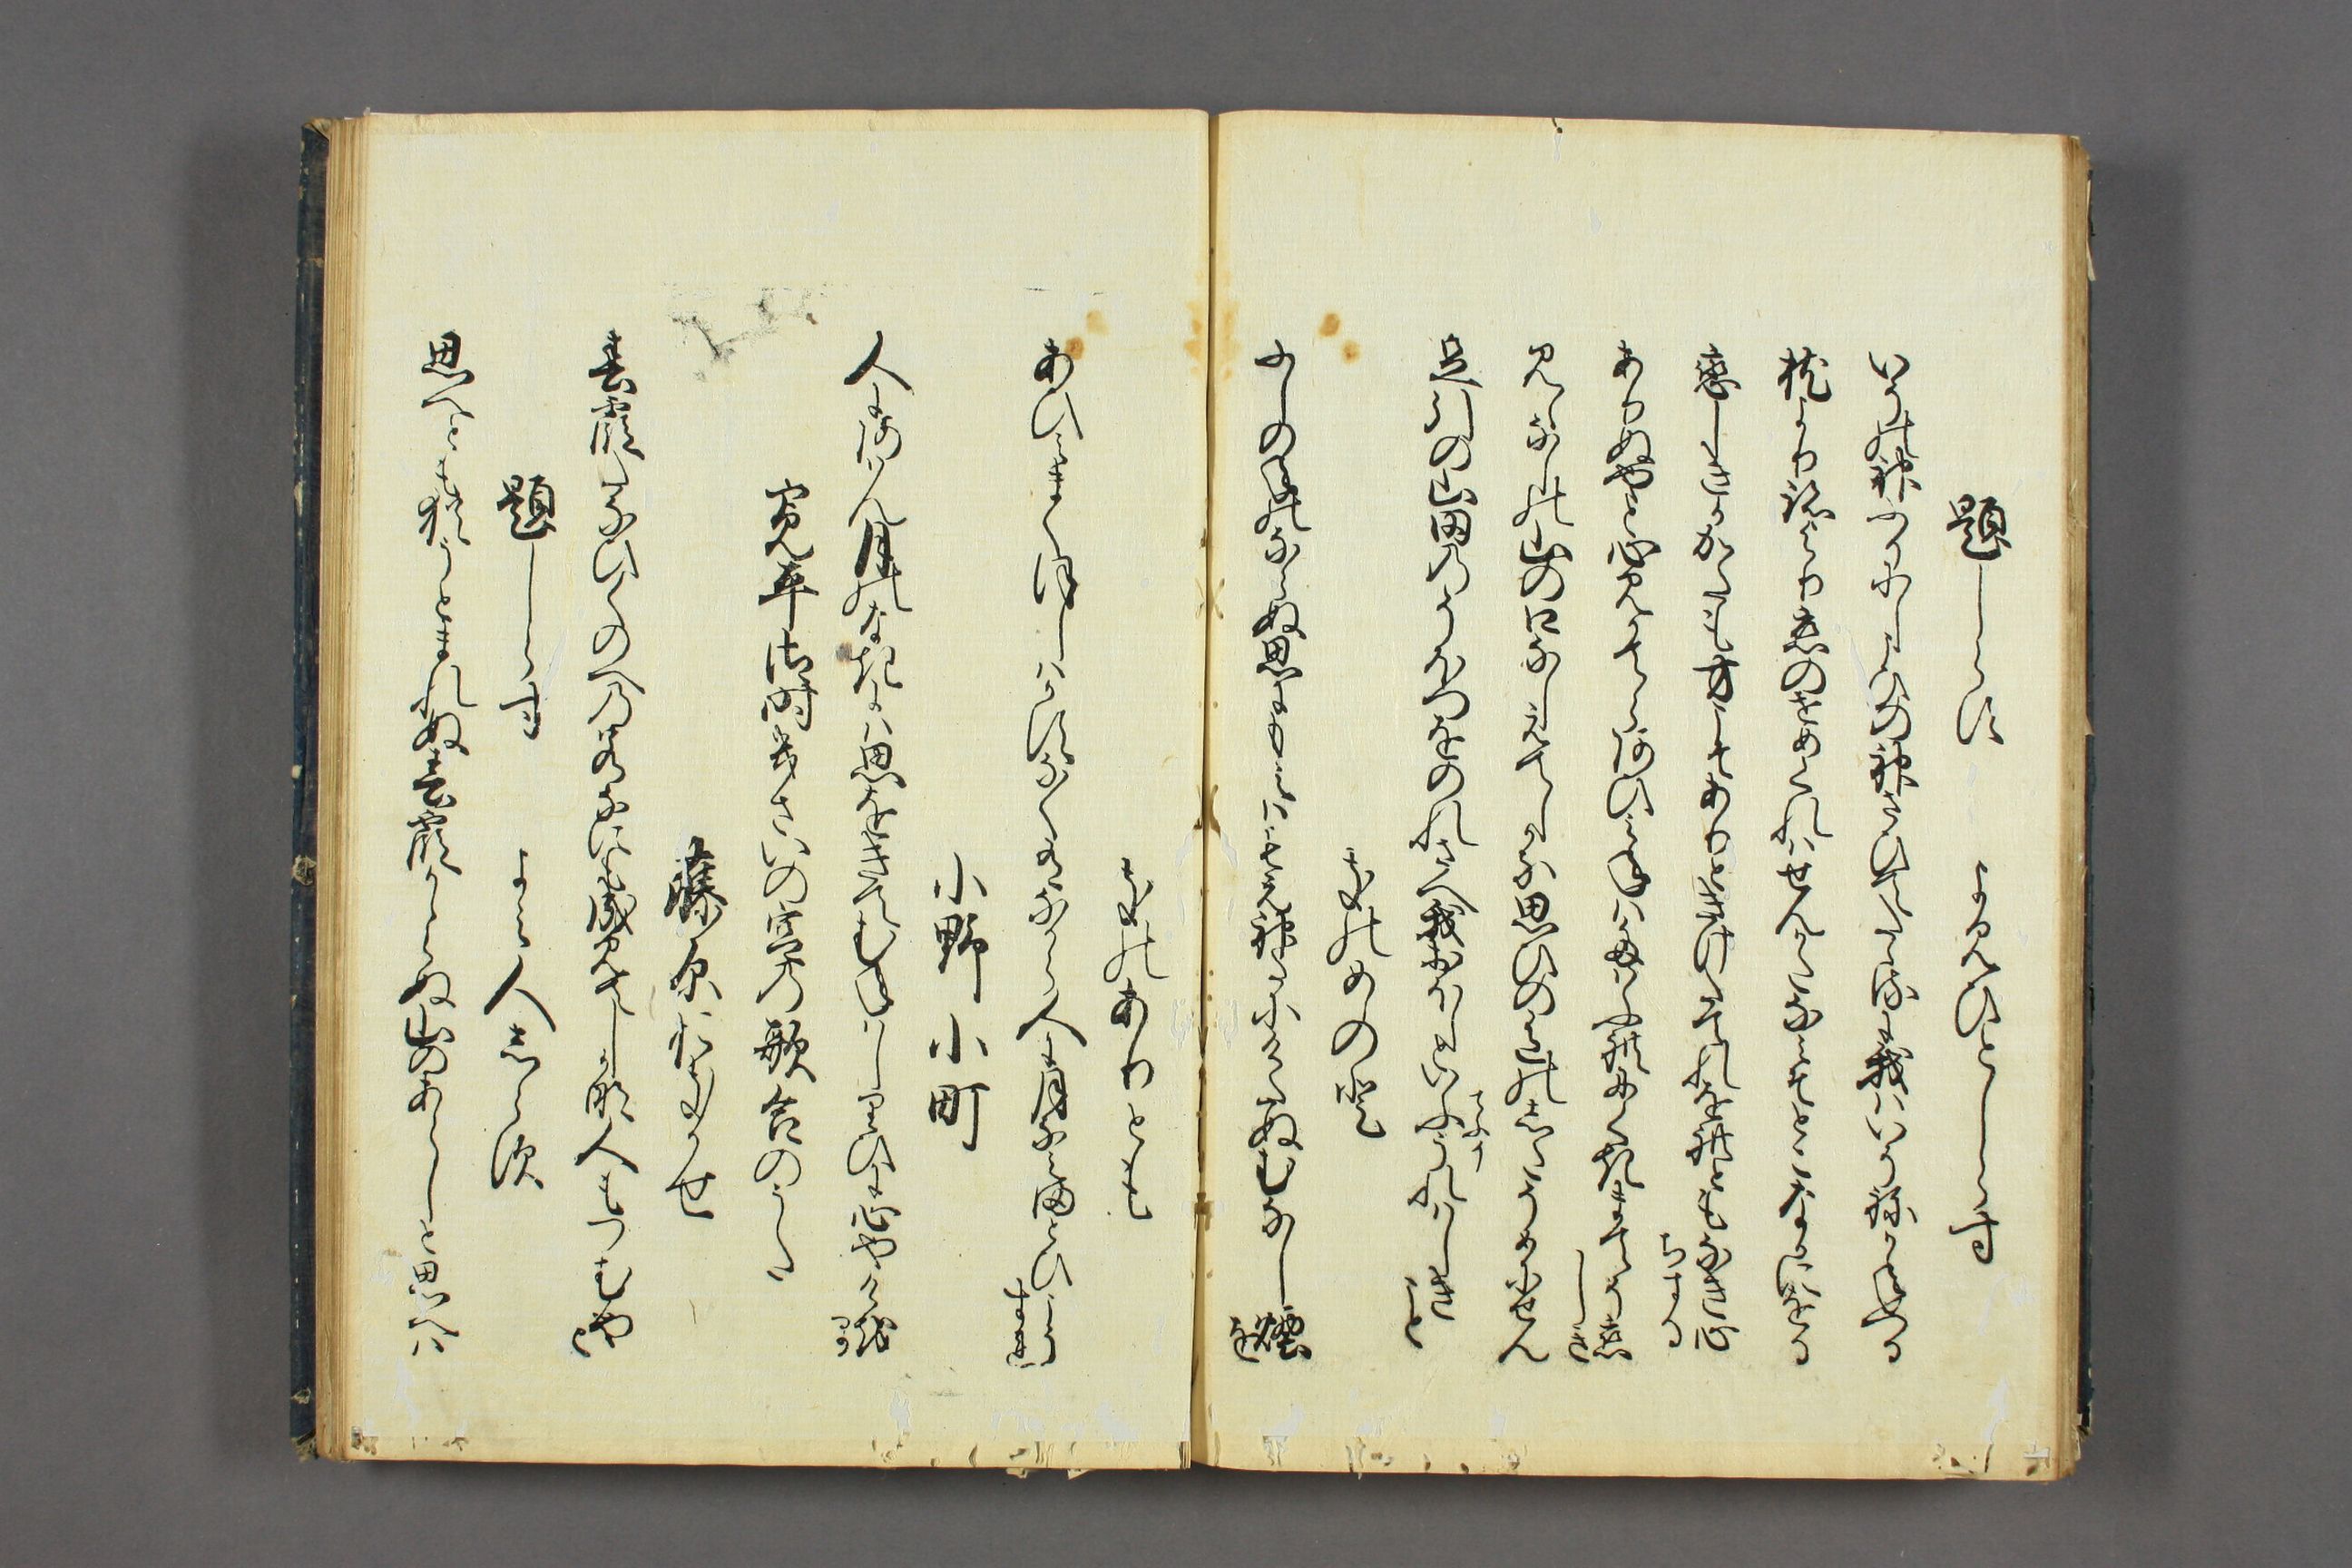 題しらす　よみ人しらす
いその神ふりにしこひの神さひてたゝるに我はいそねかねつる
枕よりあとより恋のせめくれはせんかたなみそとこなかにをる
恋しきかかたもかたこそありときけたてれをれともなき心
ちかな
ありぬやと心見かてらあひみねはたはふれにくきまてそ恋
しき
みゝなしの山のくちなしえてしかな思ひの色のしたそめにせん
足引の山田のそほつをのれさへ我をほしといふうれはしき
こと
きのめのと
ふしのねのならぬ思ひにもえはもえ神たにけたぬむなし煙
を
きのありとも
あひ見まくほしはかすなくありなから人に月なみまとひこそ
すれ
小野小町
人にあはん月のなきには思ひをきてむねはしりひに心やけ
をり
寛平御時きさいの宮の歌合のうた
藤原おきかせ
春霞たなひくのへのわかなにも成見てしかな人もつむや
と
題しらす　よみ人しらす
思へとも猶うとまれぬ春霞かゝらぬ山のあらしと思へは